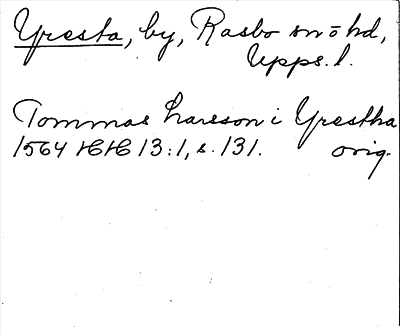 Yresta, by, Rasbo sn o hd,
Upps. l.
Tommas Larsson i Yrestha
1564 HH 13:1, s. 131. orig.